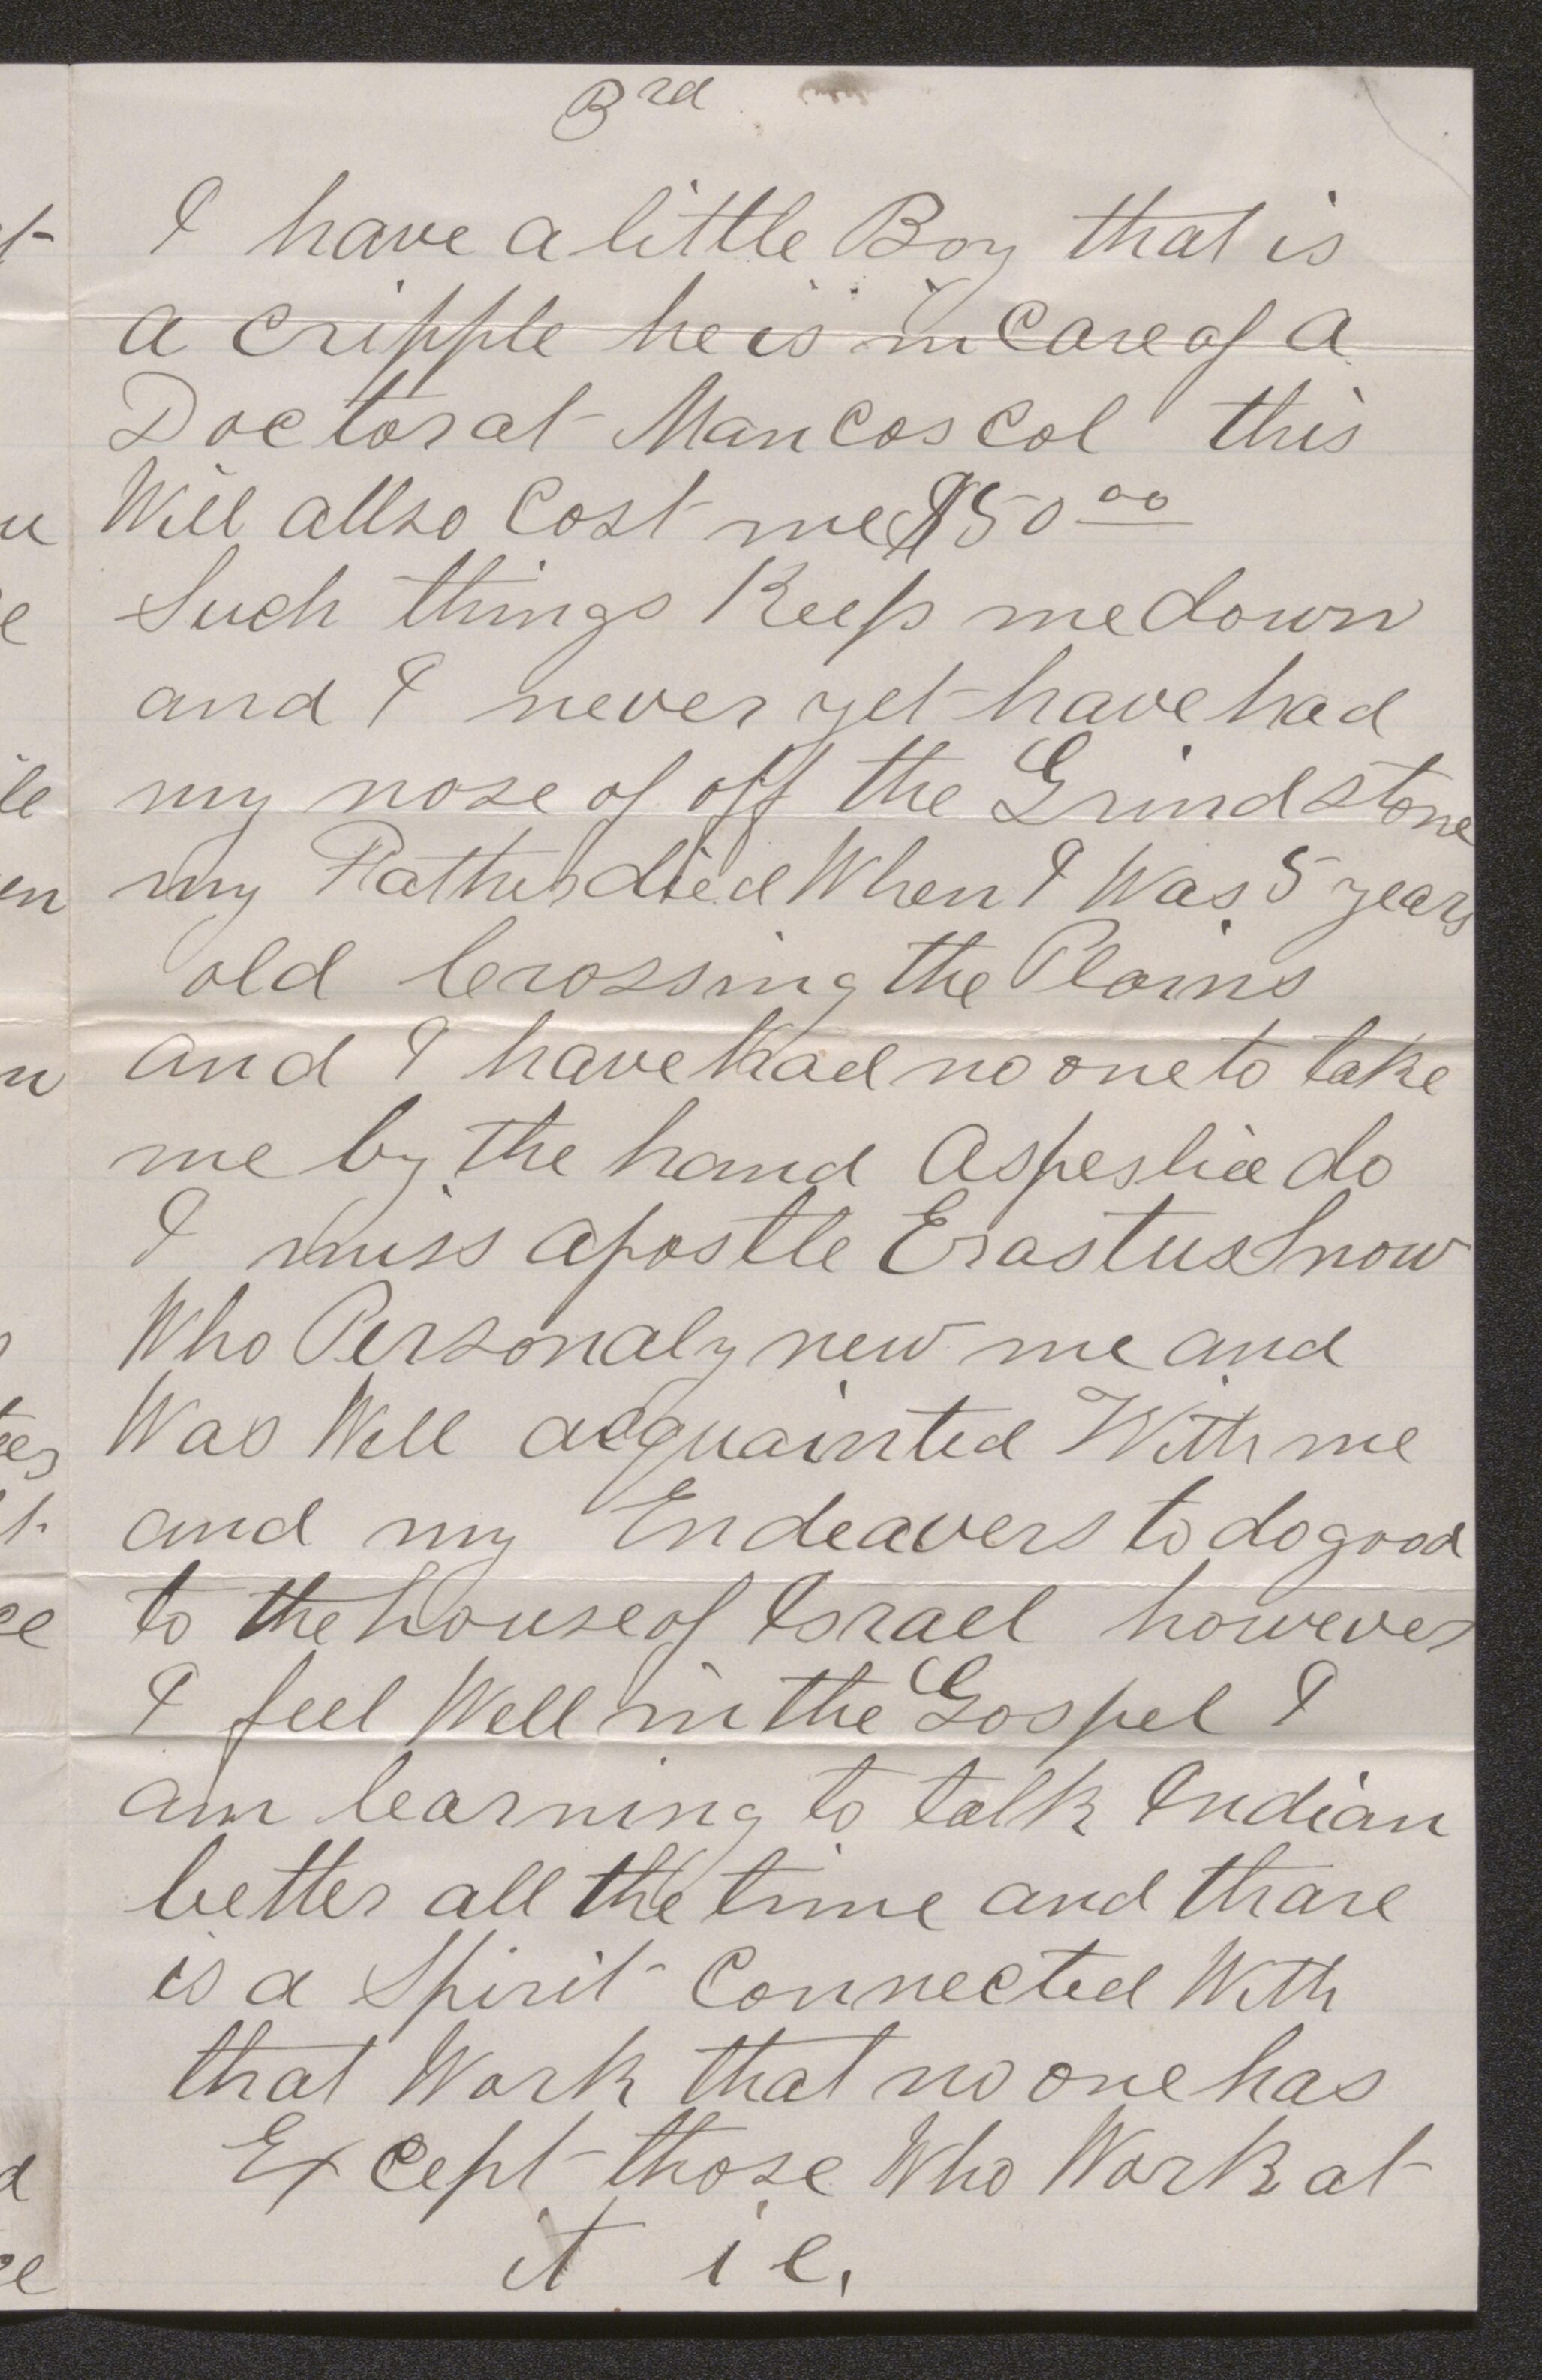 3rd
I have a little Boy that is
a cripple he is in Care of a
Doctor at Mancos Col this
Will allso Cost me $50.00
Such things Keep me down
and I never yet have had
my nose of off the Grindstone
my Father died When I Was 5 years
old Crossing the Plains
and I have had no one to take
me by the hand Aspeslie do
I miss apostle Erastus Snow
Who Personaly new me and
Was Well acquainted With me
and my Endeavers to do good
to the house of Israel however
I feel Well in the Gospel I
am learning to talk Indian
better all the time and thare
is a Spirit Connected With
that Work that no one has
Except those Who Work at
it i e.